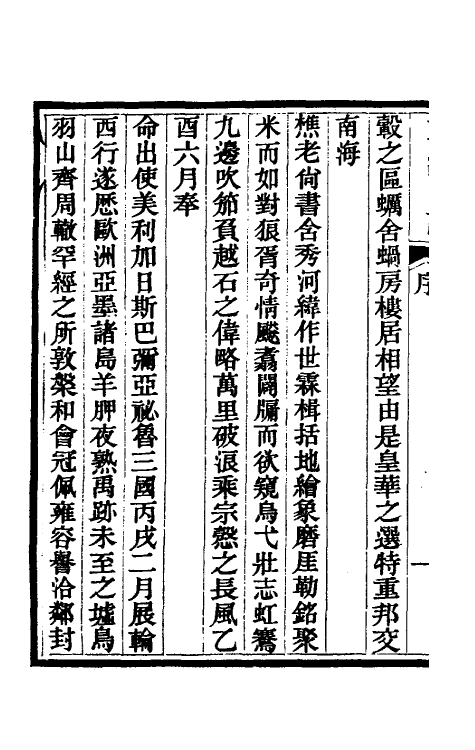 轂之區蠣舍蝸房樓居相望由是皇華之選特重邦交
南海
樵老尙書含秀河緯作世霖楫括地繪象磨厓勒銘聚
米而如對狼胥奇情飈翥闢牖而欲窺烏弋壯志虹騫
九邊吹笳負越石之偉略萬里破浪乘宗慤之長風乙
酉六月奉
命出使美利加日斯巴彌亞祕魯三國丙戌二月展輪
西行遂歷歐洲亞墨諸島羊胛夜熟禹跡未至之墟鳥
羽山齊周轍罕經之所敦槃和會冠佩雍容譽洽鄰封
序
一